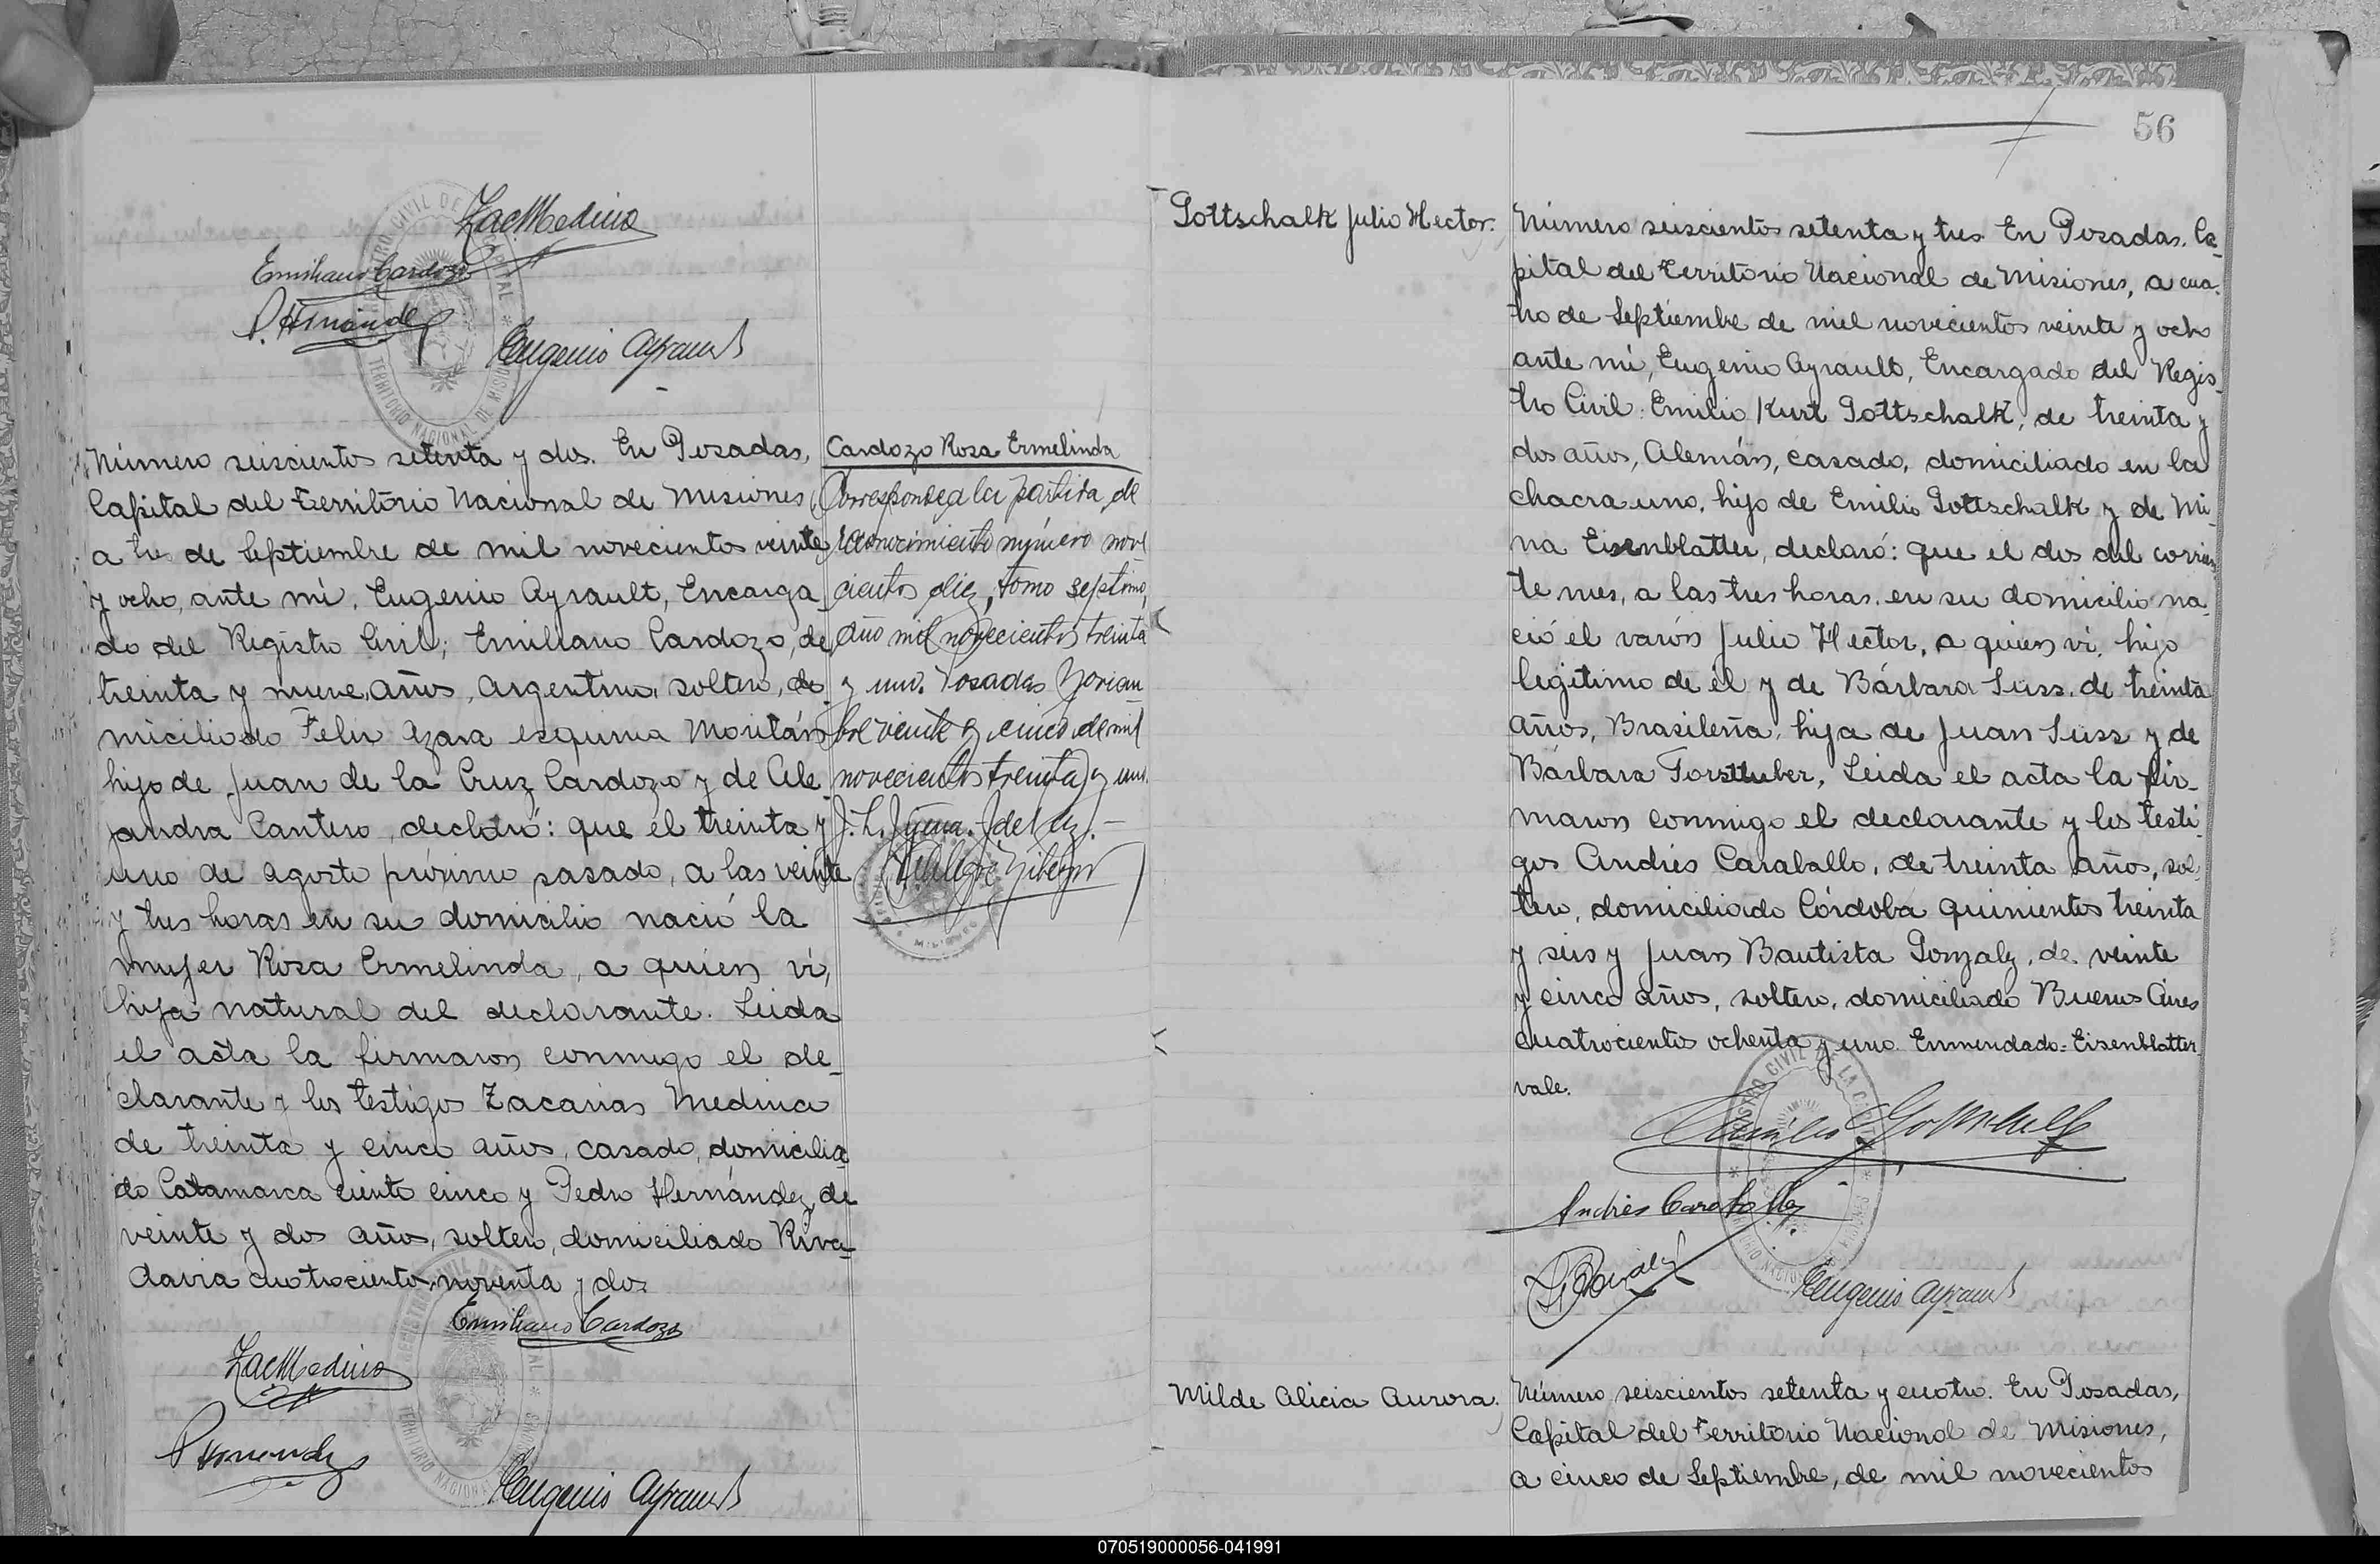 Zac Medina
Emiliano Cardozo
P. Hernandez
Eugenio Ayrault
REGISTRO CIVIL DE LA CAPITAL
TERRITORIO NACIONAL DE MISIONES
Número seiscientos setenta y dos. En Posadas,
Capital del Territorio Nacional de Misiones
a tres de Septiembre de mil novecientos veinte
y ocho, ante mí, Eugenio Ayrault, Encarga
do del Registro Civil; Emiliano Cardozo, de
treinta y nueve, años, Argentino, soltero, do
miciliado Felix Azara esquina Moritán
hijo de Juan de la Cruz Cardozo y de Ale
jandra Cantero, declaró: que el treinta y
uno de Agosto próximo pasado, a las veinte
y tres horas en su domicilio nació la
mujer Rosa Ermelinda, a quien ví,
hija natural del declarante. Leida
el acta la firmaron conmigo el de_
clarante y los testigos Zacarias Medina
de treinta y cinco años, casado, domicilia
do Catamarca ciento cinco y Pedro Hernández, de
veinte y dos años, soltero, domiciliado Riva_
davia cuatrocientos noventa y dos
Emiliano Cardozo
Zac Medina
P Hernandez
Eugenio Ayrault
Cardozo Rosa Ermelinda
Corresponde a la partida de
reconocimiento número nove
cientos diez, tomo septimo,
año mil novecientos treinta
y uno. Posadas Noviem
bre veinte y cinco de mil
novecientos treinta y uno.
56
Gottschalk Julio Hector.
Número seiscientos setenta y tres. En Posadas, Ca_
pital del Territorio Nacional de Misiones, a cua_
tro de Septiembre de mil novecientos veinte y ocho
ante mí, Eugenio Ayrault, Encargado del Regis_
tro Civil: Emilio Kurt Gottschalk, de treinta y
dos años, Alemán, casado, domiciliado en la
chacra uno, hijo de Emilio Gottschalk y de Mi_
na Eisenblatter, declaró: que el dos del corrien
te mes, a las tres horas, en su domicilio na_
ció el varón Julio Hector, a quien ví, hijo
legítimo de él y de Bárbara Suss, de treinta
años, Brasileña, hija de Juan Suss y de
Bárbara Torsttuber, Leida el acta la fir_
maron conmigo el declarante y los testi_
gos Andrés Caraballo, de treinta años, sol_
tero, domiciliado Córdoba quinientos treinta
y seis y Juan Bautista Gonzalez, de veinte
y cinco años, soltero, domiciliado Buenos Aires
cuatrocientos ochenta y uno. Enmendado: Eisenblatter.
vale.
Emilio Gottschalk
Andrés Caraballo
Eugenio Ayrault
Milde Alicia Aurora.
Número seiscientos setenta y cuatro. En Posadas,
Capital del Territorio Nacional de Misiones,
a cinco de Septiembre, de mil novecientos
070519000056-041991